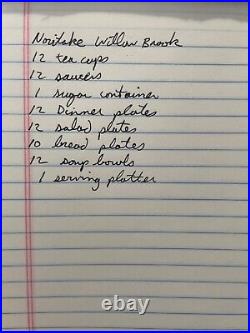 Noritake Willow Brook
12 tea cups
12 saucers
1 sugar container
12 Dinner plates
12 salad plates
10 bread plates
12 soup bowls
1 serving platter